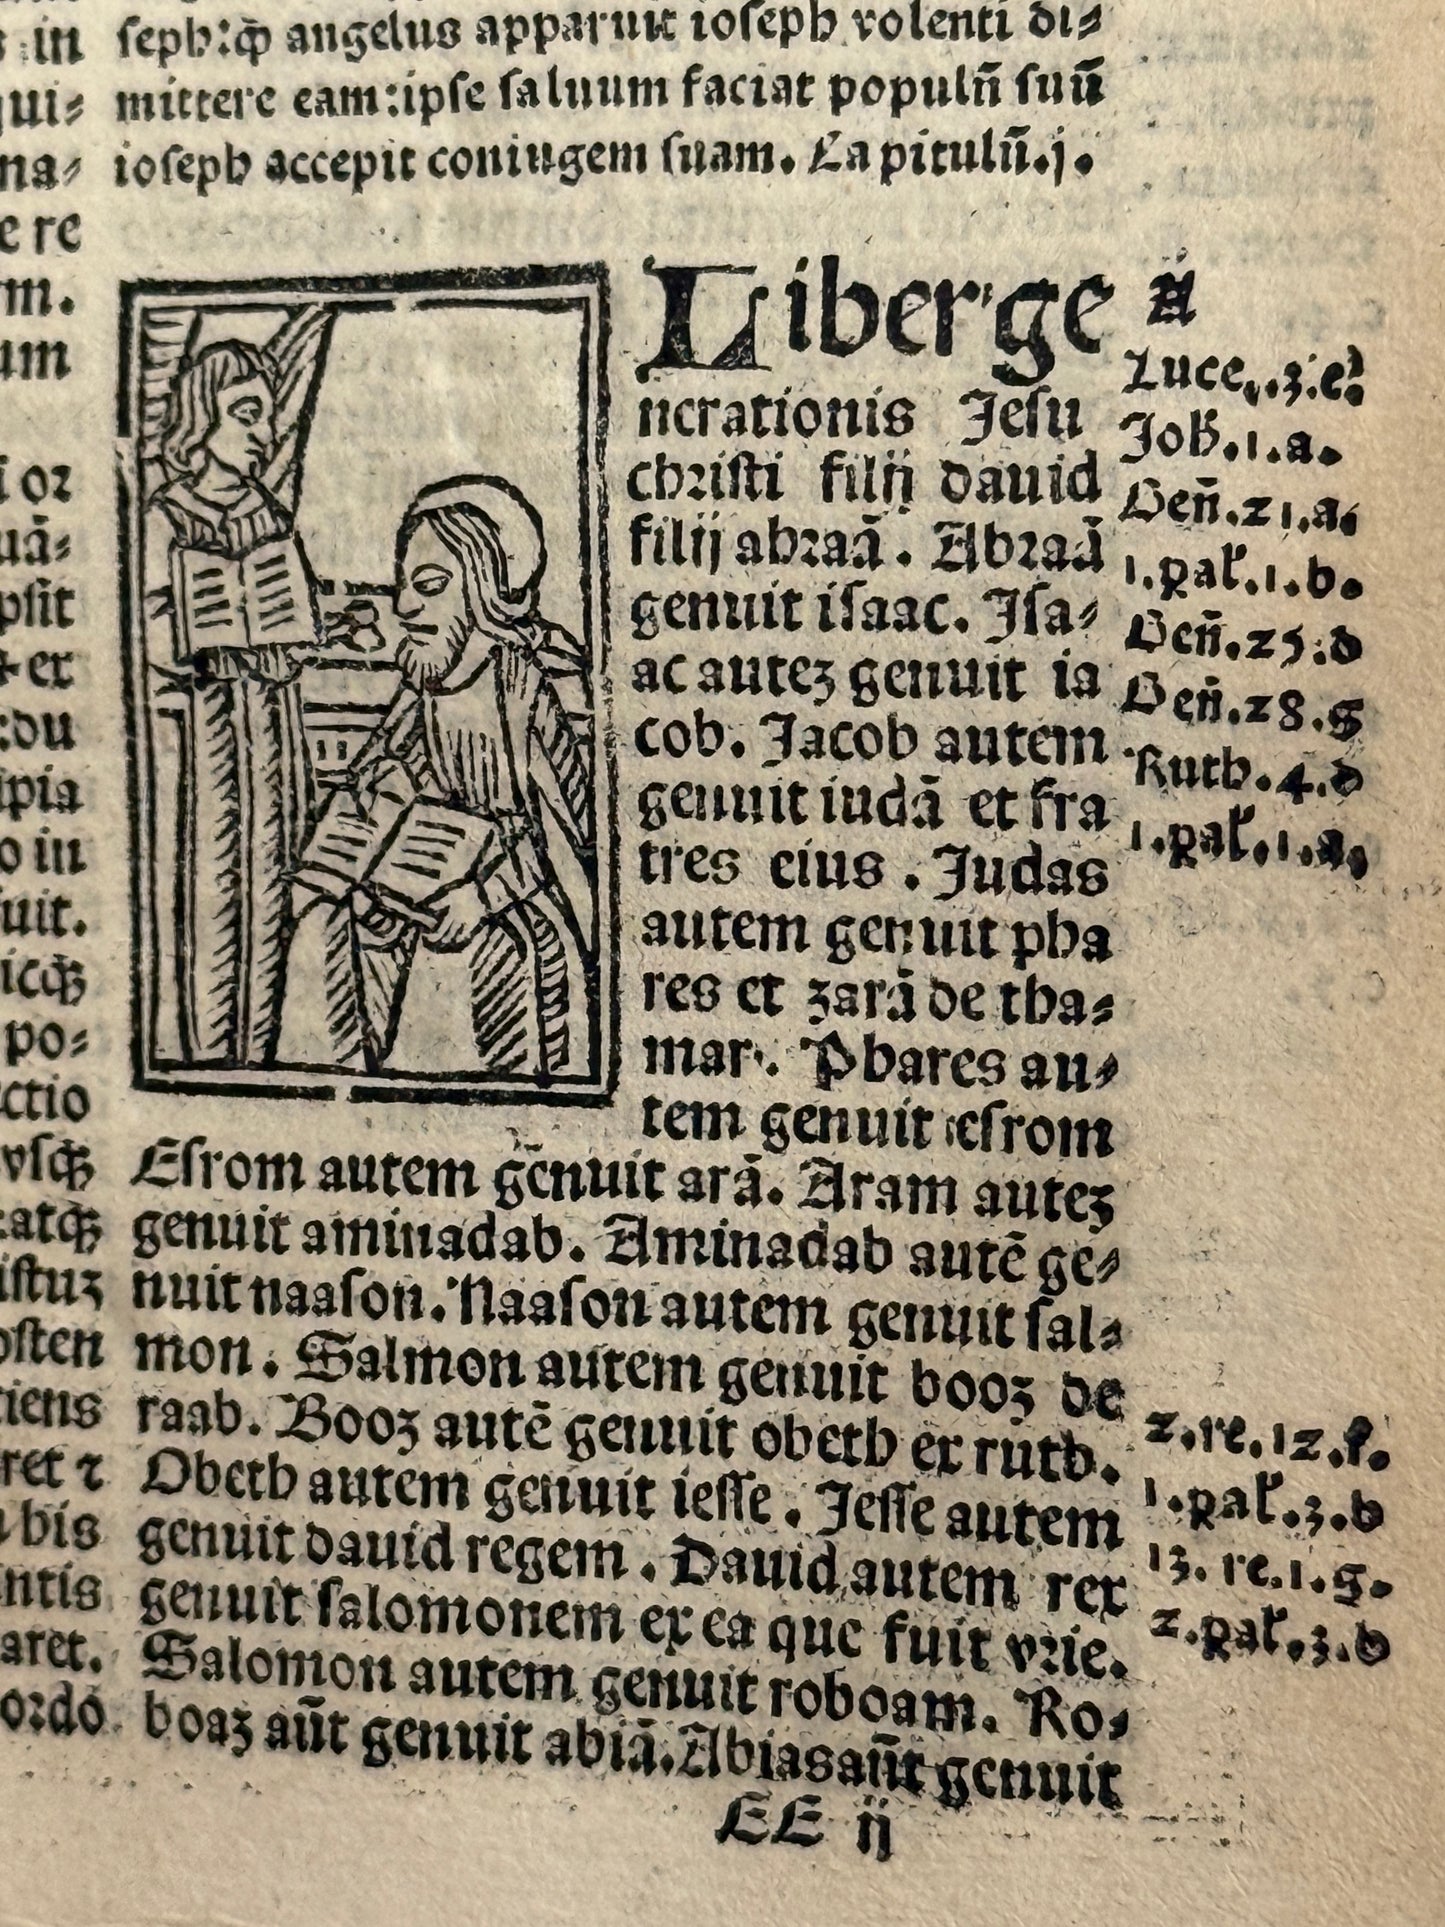 in
qui⸗
na⸗
e re
m.
um
i oꝛ
uā⸗
psit
⁊ ex
:du
ipia
o in
uit.
icqꝫ
po⸗
ctio
vſqꝫ
atqꝫ
iſtuꝫ
oſten
tiens
ret ⁊
bis
ntis
aret.
oꝛdo
ſeph:ꝙ angelus apparuit ioſeph volenti di⸗
mittere eam:ipſe ſaluum faciat populū ſuū
ioſeph accepit coniugem ſuam. Capitulū.j.
Liber ge
nerationis Jeſu
chꝛiſti filij dauid
filij abꝛaā. Abꝛaā
genuit iſaac. Iſa⸗
ac auteꝫ genuit ia
cob. Jacob autem
genuit iudā et fra
tres eius. Judas
autem genuit pha
res et zarā de tha⸗
mar. Phares au⸗
tem genuit eſrom
Eſrom autem genuit arā. Aram auteꝫ
genuit aminadab. Aminadab autē ge⸗
nuit naaſon. Naaſon autem genuit ſal⸗
mon. Salmon autem genuit booz de
raab. Booz autē genuit obeth ex ruth.
Obeth autem genuit ieſſe. Jeſſe autem
genuit dauid regem. Dauid autem rex
genuit ſalomonem ex ea que fuit vꝛie.
Salomon autem genuit roboam. Ro⸗
boaz aūt genuit abiā. Abias aūt genuit
EE ij
A
Luce..3.e.
Joh.1.a.
Gen̄.21.a.
1.pal̕.1.b.
Gen̄.25.d
Gen̄.28.g
Ruth.4.d
1.pal̕.1.a.
2.re.12.f.
1.pal̕.3.b
13.re.1.g.
2.pal̕.3.b